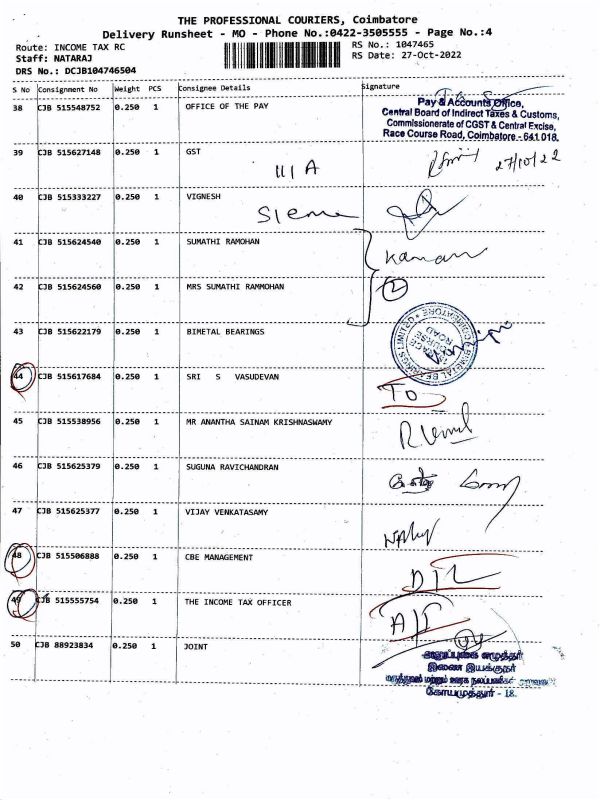 THE PROFESSIONAL COURIERS, Coimbatore
Delivery Runsheet - MO - Phone No.:0422-3505555 - Page No.:4
Route: INCOME TAX RC
RS No.: 1047465
Staff: NATARAJ
RS Date: 27-Oct-2022
DRS No.: DCJB104746504
S No Consignment No Weight PCS Consignee Details Signature
38 CJB 515548752 0.250 1 OFFICE OF THE PAY
Pay & Accounts Office,
Central Board of Indirect Taxes & Customs,
Commissionerate of CGST & Central Excise,
Race Course Road, Coimbatore - 641 018.
39 CJB 515627148 0.250 1 GST
III A
27/10/22
40 CJB 515333227 0.250 1 VIGNESH
41 CJB 515624540 0.250 1 SUMATHI RAMOHAN
Kannan
42 CJB 515624560 0.250 1 MRS SUMATHI RAMMOHAN
2
43 CJB 515622179 0.250 1 BIMETAL BEARINGS
BIMETAL BEARINGS LIMITED COIMBATORE
RACE COURSE ROAD
44 CJB 515617684 0.250 1 SRI S VASUDEVAN
TO
45 CJB 515538956 0.250 1 MR ANANTHA SAINAM KRISHNASWAMY
46 CJB 515625379 0.250 1 SUGUNA RAVICHANDRAN
47 CJB 515625377 0.250 1 VIJAY VENKATASAMY
48 CJB 515506888 0.250 1 CBE MANAGEMENT
D/L
49 CJB 515555754 0.250 1 THE INCOME TAX OFFICER
50 CJB 88923834 0.250 1 JOINT
இணை இயக்குநர்
மருத்துவம் மற்றும் ஊரக நலப்பணிகள்
கோயமுத்தூர் - 18.